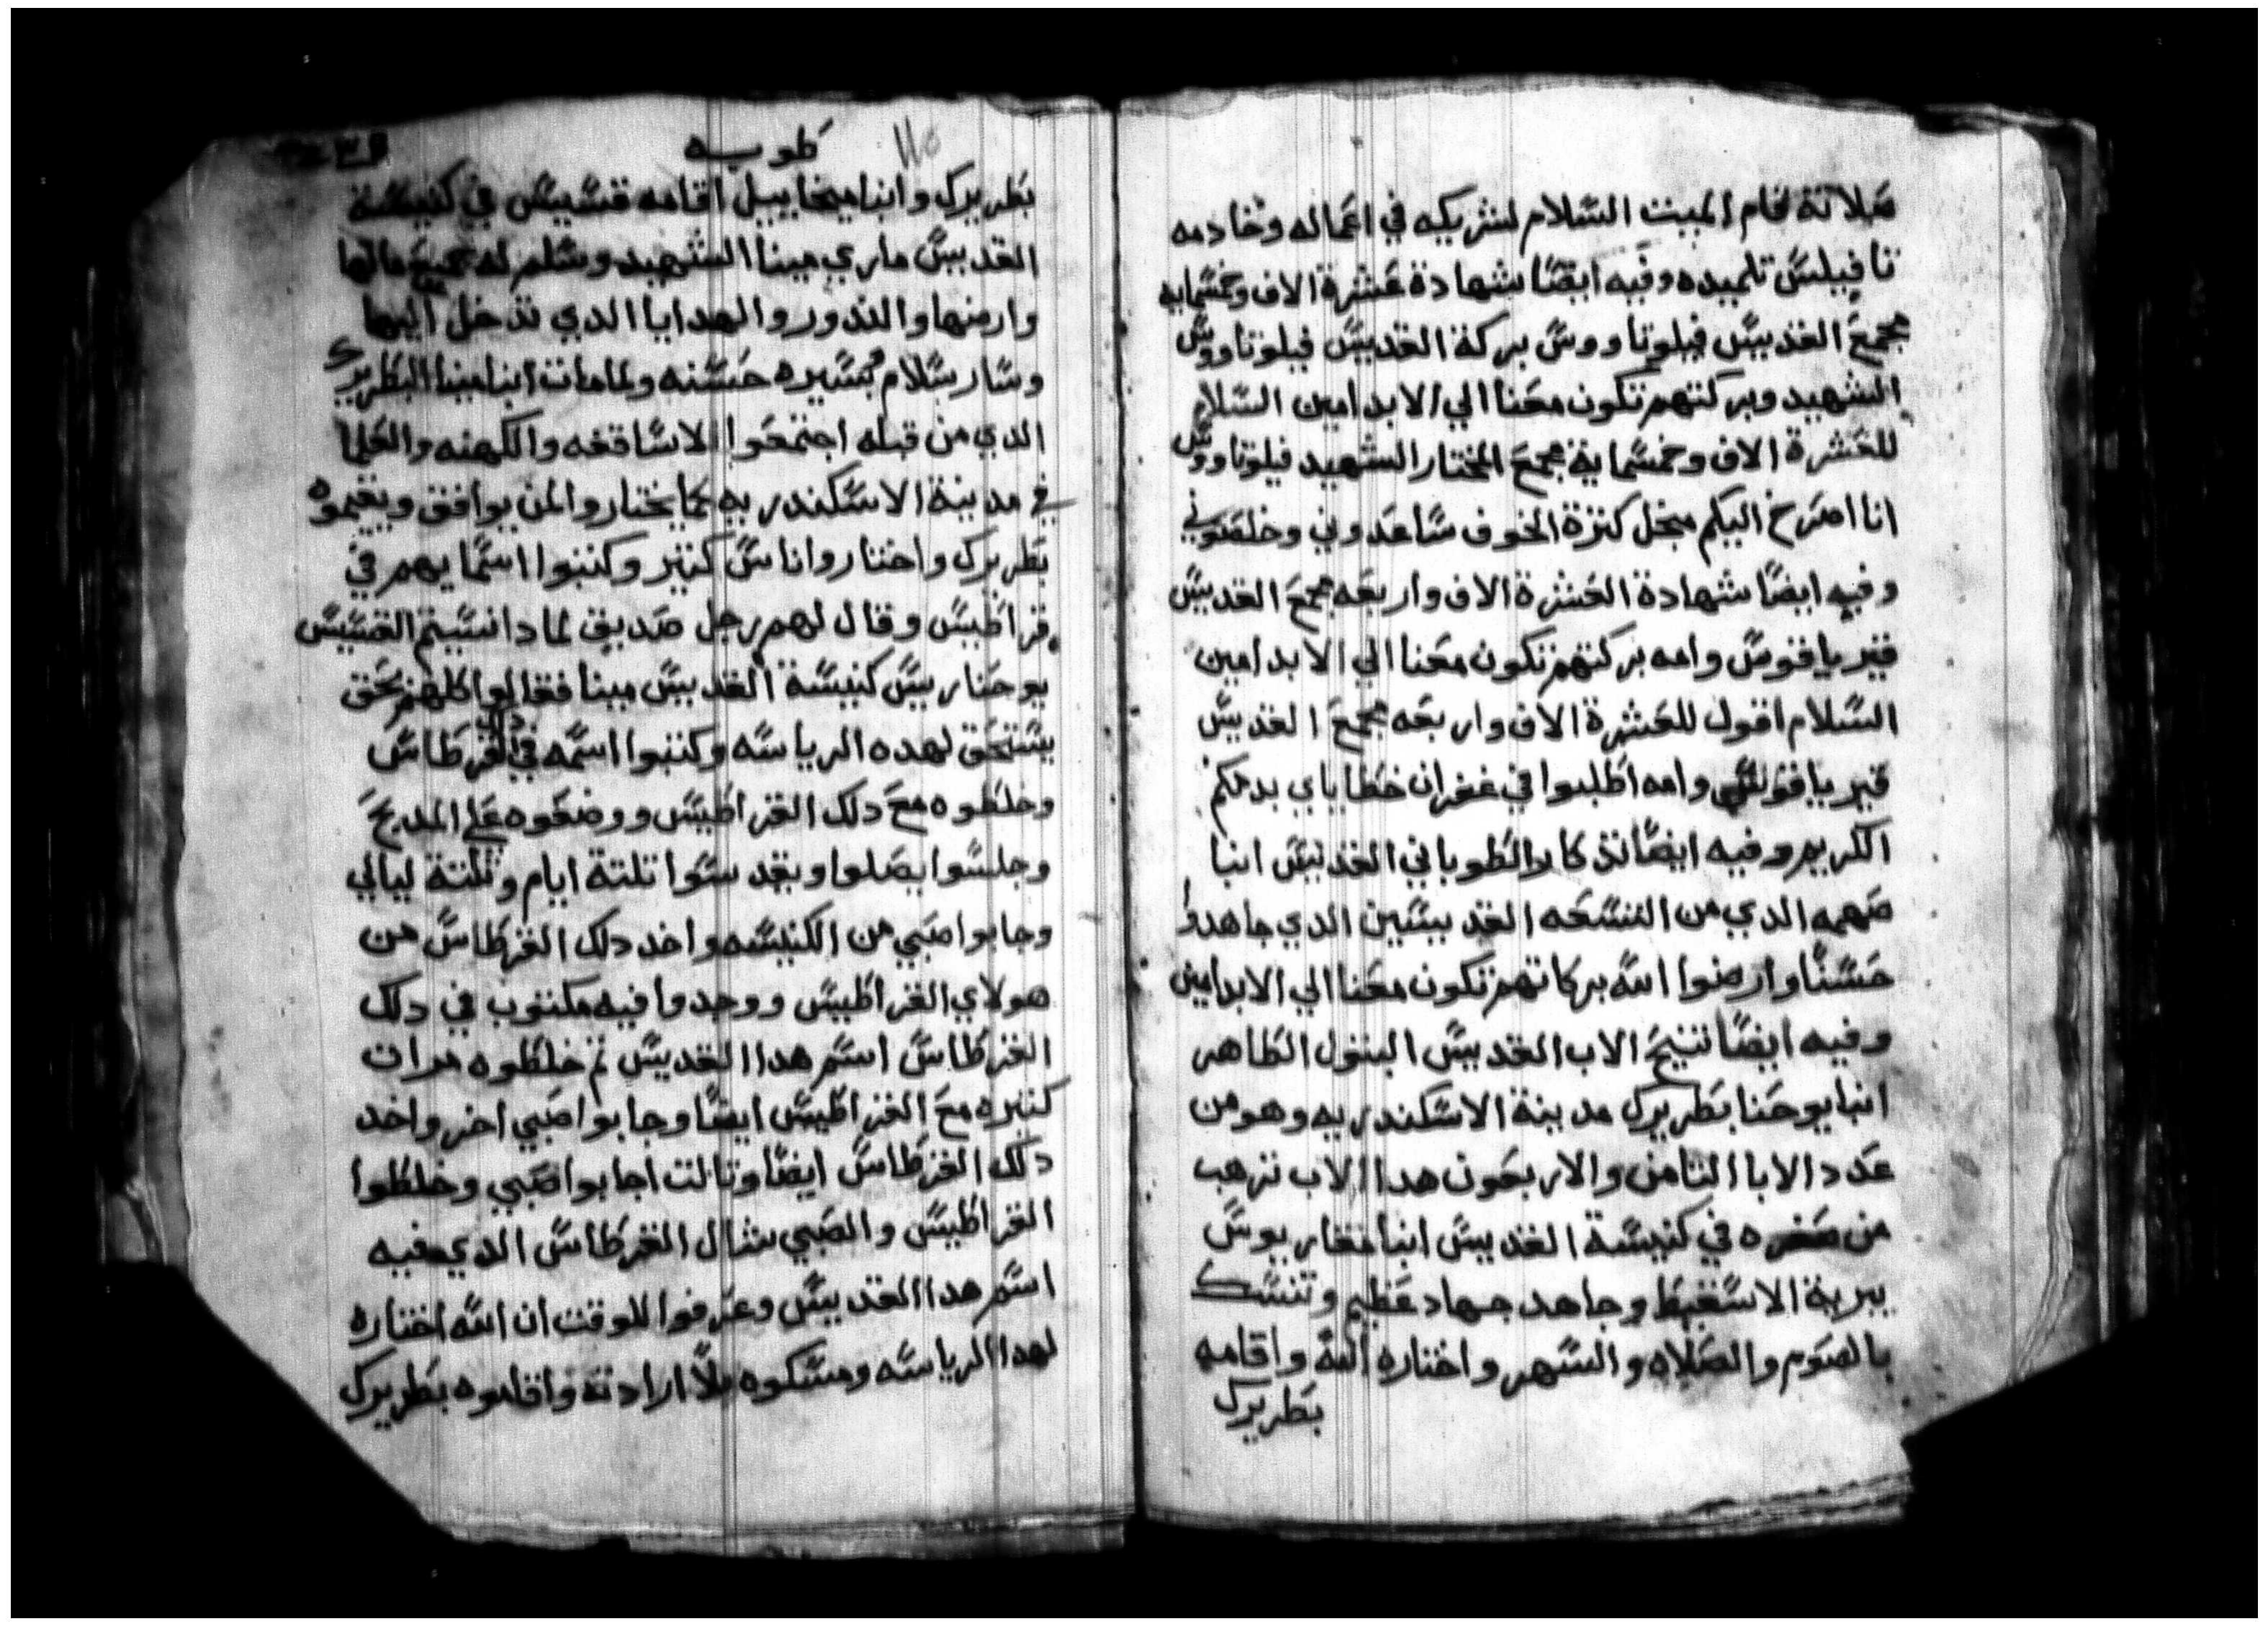 صلاتة قام الميت السلام لشريكه في اعماله وخادمه
تافيلس تلميده وفيه ايضا شهادة عشرة الاف وخمسمايه
مجمع القديس فيلوتاووس بركة القديس فيلوتاووس
الشهيد وبركتهم تكون معنا الي الابد امين السلام
للعشرة الاف وخمسماية مجمع المختار الشهيد فيلوتاووس
انا اصرخ اليكم من كترة الخوف ساعدوني وخلصوني
وفيه ايضا شهادة العشرة الاف واربعه مجمع القديس
قيرياقوس وامه بركتهم تكون معنا الي الابد امين
السلام اقول للعشرة الاف واربعه مجمع القديس
قيرياقوس وامه اطلبوا في غفران خطاياي بدمكم
الكريم وفيه ايضا تدكار الطوباني القديس انبا
صهمه الدي من التسعه القديسين الدي جاهدوا
حسنا وارضوا الله بركاتهم تكون معنا الي الابد امين
وفيه ايضا تنيح الاب القديس البتول الطاهر
انبا يوحنا بطريرك مدينة الاسكندريه وهو من
عدد الابا التامن والاربعون هدا الاب ترهب
من صغره في كنيسة القديس انبا مقاريوس
ببرية الاسقيط وجاهد جهاد عظيم وتنسك
بالصوم والصلاه والسهر واختاره الله واقامه
بطريرك
طوبه
١١٥
بطريرك وانبا ميخاييل اقامه قسيس في كنيسة
القديس ماري مينا الشهيد وسلم له جميع مالها
وارضها والندور والهدايا الدي تدخل اليها
وسار سلام بسيره حسنه ولما مات انبا مينا البطريرك
الدي من قبله اجتمعوا الاساقفه والكهنه والعلما
في مدينة الاسكندريه لما يختاروا لمن يوافق ويقيموه
بطريرك واختاروا ناس كتير وكتبوا اسمايهم في
قراطيس وقال لهم رجل صديق لمادا نسيتم القسيس
يوحنا ريس كنيسة القديس مينا فقالوا كلهم بحق
يستحق لهده الرياسه وكتبوا اسمه في دلك القرطاس
وخلطوه مع دلك القراطيس ووضعوه علي المدبح
وجلسوا يصلوا ويقدسوا تلتة ايام وتلتة ليالي
وجابوا صبي من الكنيسه واخد دلك القرطاس من
هولاي القراطيس ووجدوا فيه مكتوب في دلك
القرطاس اسم هدا القديس تم خلطوه مرات
كتيره مع القراطيس ايضا وجابوا صبي اخر واخد
دلك القرطاس ايضا وتالت اجابوا صبي وخلطوا
القراطيس والصبي شال القرطاس الدي فيه
اسم هدا القديس وعرفوا للوقت ان الله اختاره
لهدا الرياسه ومسكوه بلا ارادته واقاموه بطريرك